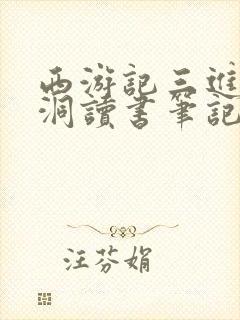 西游記三進
洞讀書筆記
汪芬娟